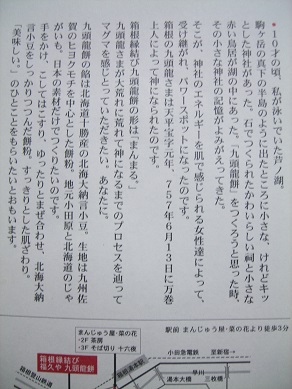 ・10才の頃、私が泳いでいた芦ノ湖。
駒ヶ岳の真下の半島のように出たところに小さな、けれどキッ
とした神社があった。石でつくられたかわいらしい祠と小さな
赤い鳥居が湖の中にあった。「九頭龍餅」をつくろうと思った時、
その小さな神社の記憶がよみがえってきた。
そこが、神社のエネルギーを肌で感じられる女性達によって、
受け継がれ、パワースポットになったのです。
箱根の九頭龍さまは天平宝字元年、757年6月13日に万巻
上人によって神になられたのです。
箱根縁結び九頭龍餅の形は「まんまる。」
九頭龍さまが大荒れに荒れて神になるまでのプロセスを辿って
マグマを感じとっていただきたい。あなたに。
九頭龍餅の餡は北海道十勝産の北海大納言小豆。生地は九州佐
賀のヒヨクモチを中心とした餅粉。地元小田原と北海道のじゃ
がいも。日本の素材だけでつくりたいのです。
手をかけ、こしてはこすり、ゆったりとまぜ合わせ、北海大納
言小豆をしっかりつつんだ餅粉。すっきりとした肌ざわり。
「美味しい。」のひとことをもらいたいとおもいます。
駅前 まんじゅう屋・菜の花より徒歩3分
まんじゅう屋・菜の花
・2F 茶房
・3F そば切り 十六夜
小田急電鉄
至新宿→
箱根湯本駅
早川
湯本大橋
三枚橋
箱根縁結び
福久や 九頭龍餅
箱根登山鉄道